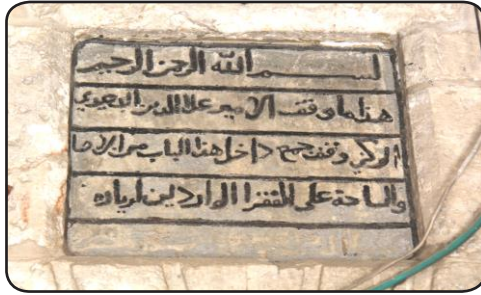 بسم الله الرحمن الرحيم
هذا ما وقف الامير علا الدين
الركني وقف جميع داخل هذا الباب من الار
والساحة على الفقرا الواردين لزياره